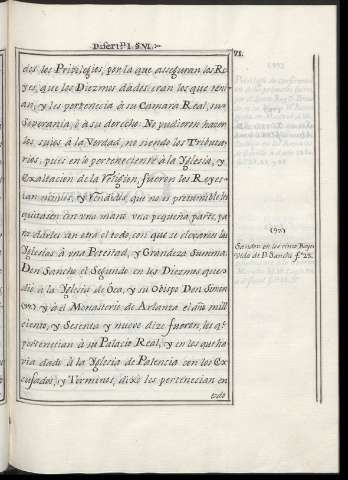 Disert.n I. §. VI.
71.
dos los Privilegios, por la que aseguran los Re-
yes, que los Diezmos dados eran los que tení-
an, y les pertenecia à su Camara Real, su
Soberania, ò à su derecho. No pudieron hacer-
los suios à la Verdad, no siendo los Tributa-
rios, pues en lo perteneciente à la Yglesia, y
Exaltacion de la Religion, fueron los Reyes
tan nimios, y que no es presumible les
quitasen con una mano una pequeña parte, pa-
ra darles con otra el todo, con que se elevaron las
Yglesias à una Potestad, y Grandeza Summa.
Don Sancho el Segundo en los Diezmos que
diò à la Yglesia de Oca, y su Obispo Don Simon
(90) y à el Monasterio de Arlanza el año mill
ciento, y Sesenta y nueve dize fueron, los q.e
pertenecian à su Palacio Real, y en los que ha-
via dado à la Yglesia de Palencia con los Ex-
cusados, y Terminos, dixo les pertenecian en
todo
(90)
Sandov. en los cinco Reyes
vida de D. Sancho f.º 25.